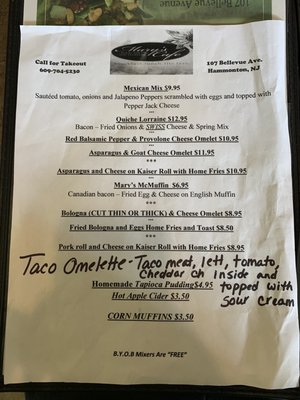 107 Bellevue Avenue
Call for Takeout
609-704-5230
107 Bellevue Ave.
Hammonton, NJ
Mexican Mix $9.95
Sautéed tomato, onions and Jalapeno Peppers scrambled with eggs and topped with
Pepper Jack Cheese
---
Quiche Lorraine $12.95
Bacon – Fried Onions & SWISS Cheese & Spring Mix
---
Red Balsamic Pepper & Provolone Cheese Omelet $10.95
---
Asparagus & Goat Cheese Omelet $11.95
***
Asparagus and Cheese on Kaiser Roll with Home Fries $10.95
***
Mary's McMuffin $6.95
Canadian bacon – Fried Egg & Cheese on English Muffin
***
Bologna (CUT THIN OR THICK) & Cheese Omelet $8.95
***
Fried Bologna and Eggs Home Fries and Toast $8.50
***
Pork roll and Cheese on Kaiser Roll with Home Fries $8.95
Taco Omelette - Taco meat, lett, tomato,
cheddar ch inside and
topped with
sour cream
Homemade Tapioca Pudding $4.95
Hot Apple Cider $3.50
CORN MUFFINS $3.50
B.Y.O.B Mixers Are "FREE"